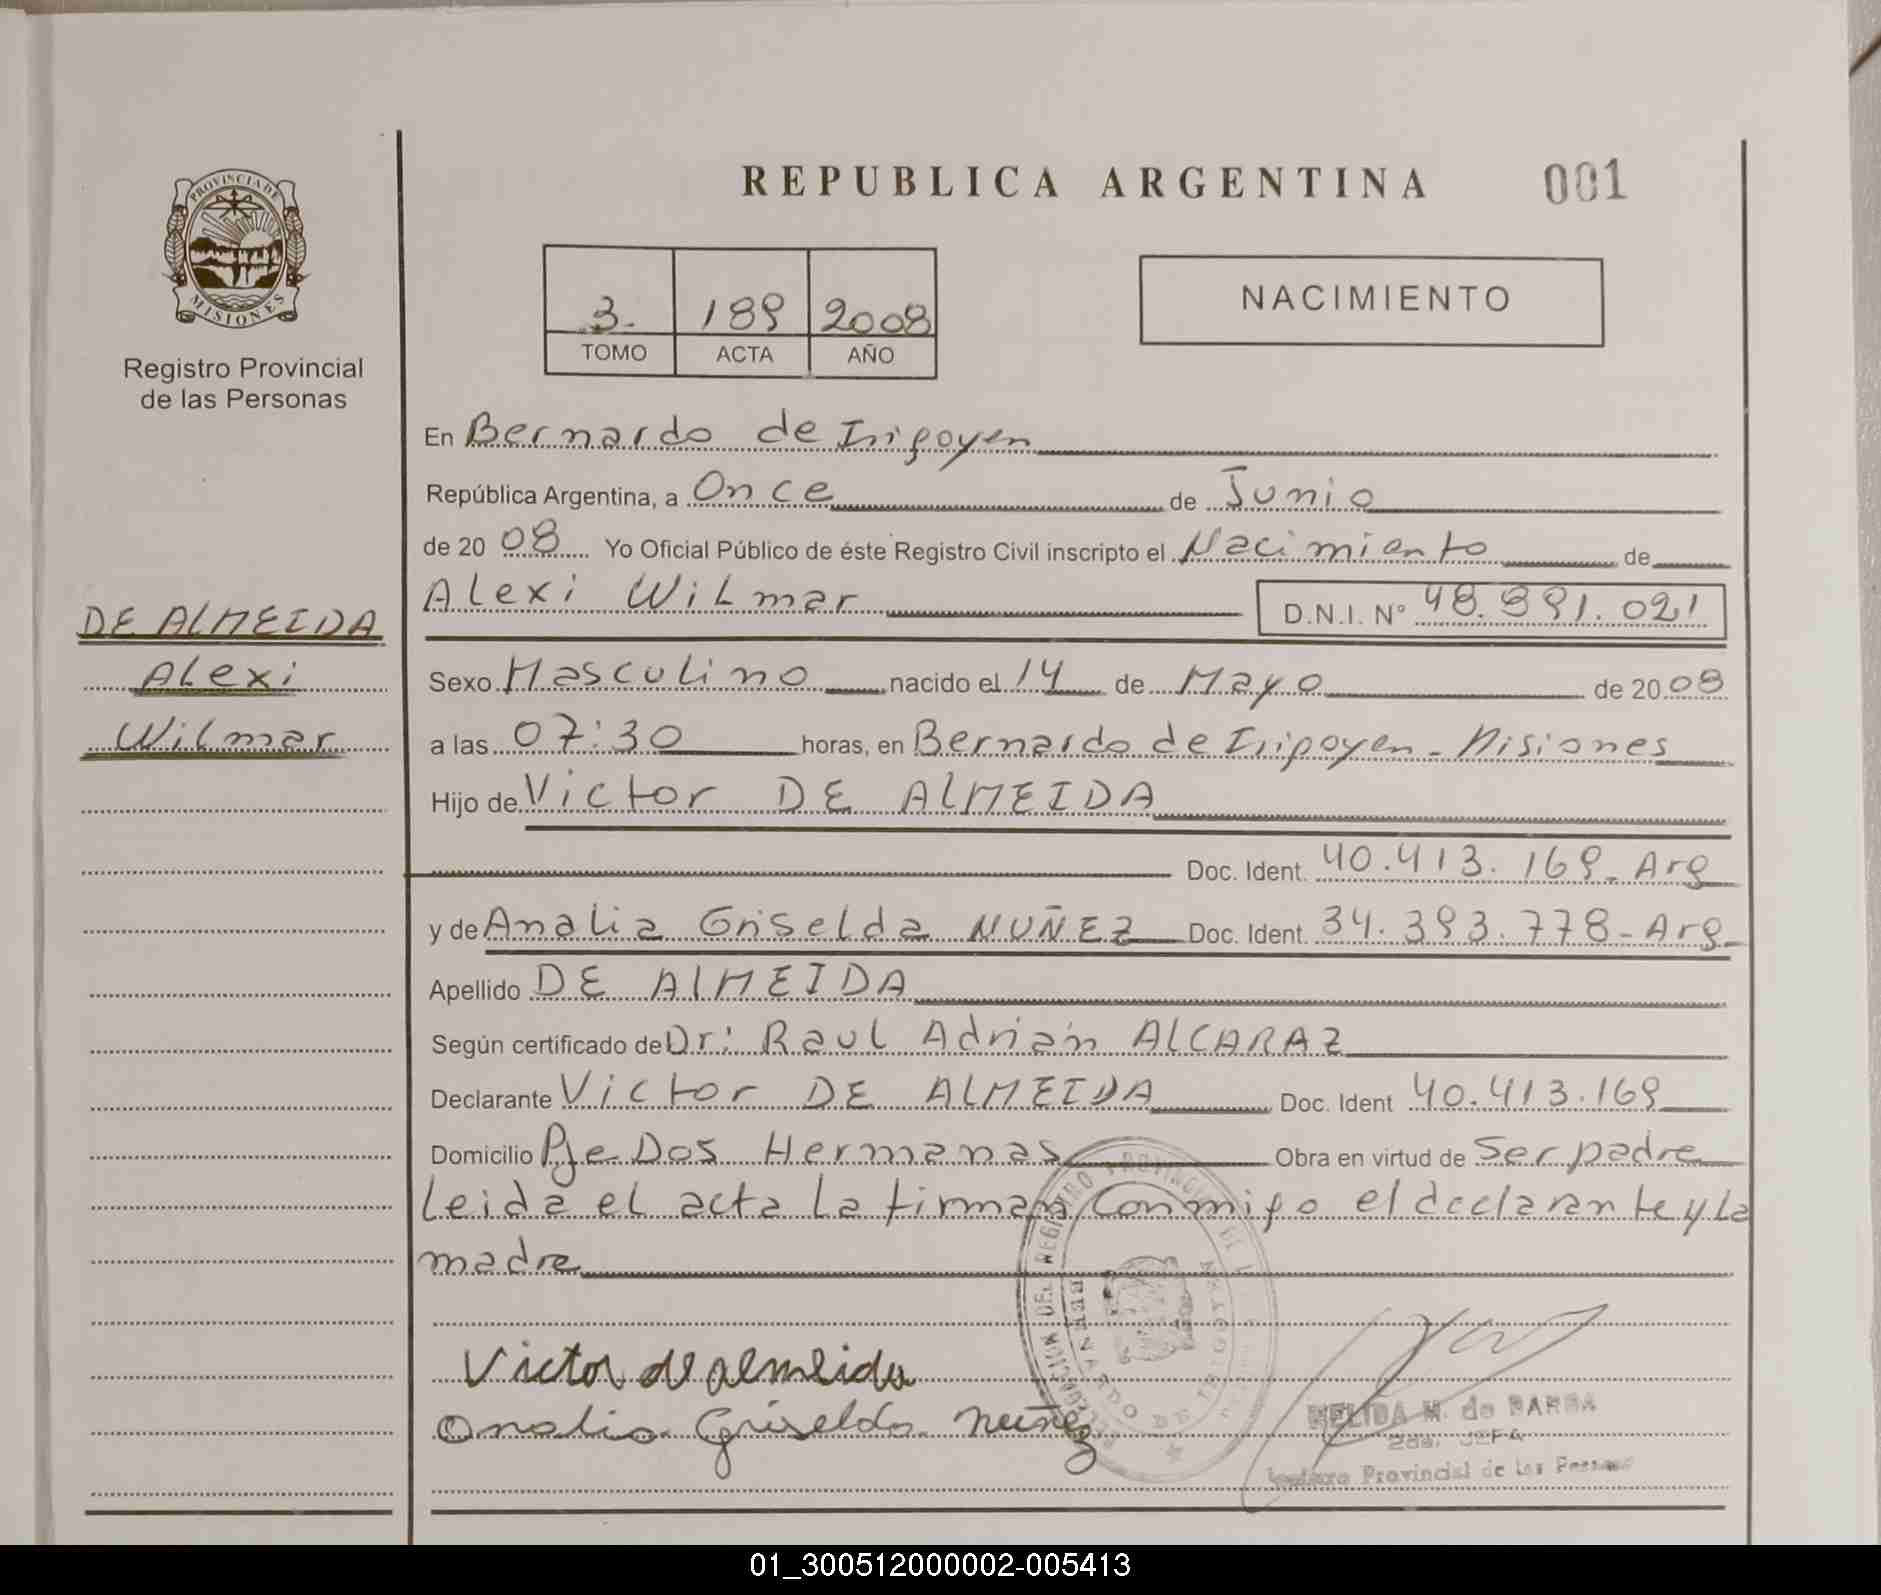 REPUBLICA ARGENTINA 001
PROVINCIA DE
MISIONES
Registro Provincial
de las Personas
3 189 2008
TOMO ACTA AÑO
NACIMIENTO
En Bernardo de Irigoyen
República Argentina, a Once de Junio
de 20 08 Yo Oficial Público de éste Registro Civil inscripto el Nacimiento de
Alexi Wilmar D.N.I. Nº 48.991.021
DE ALMEIDA
Alexi
Wilmar
Sexo Masculino nacido el 14 de Mayo de 20 08
a las 07:30 horas, en Bernardo de Irigoyen - Misiones
Hijo de Victor DE ALMEIDA
Doc. Ident. 40.413.169 - Arg
y de Analia Griselda NUÑEZ Doc. Ident. 34.393.778 - Arg
Apellido DE ALMEIDA
Según certificado de Dr: Raul Adrián ALCARAZ
Declarante Victor DE ALMEIDA Doc. Ident 40.413.169
Domicilio Pje Dos Hermanas Obra en virtud de Ser padre
Leida el acta la firman conmigo el declarante y la
madre
Victor de almeida
Analia Griselda Nuñez
DELEGACION DEL REGISTRO PROVINCIAL DE
BERNARDO DE IRIGOYEN
NELIDA M. de BARBA
2da. JEFA
Provincial de las Personas
01_300512000002-005413